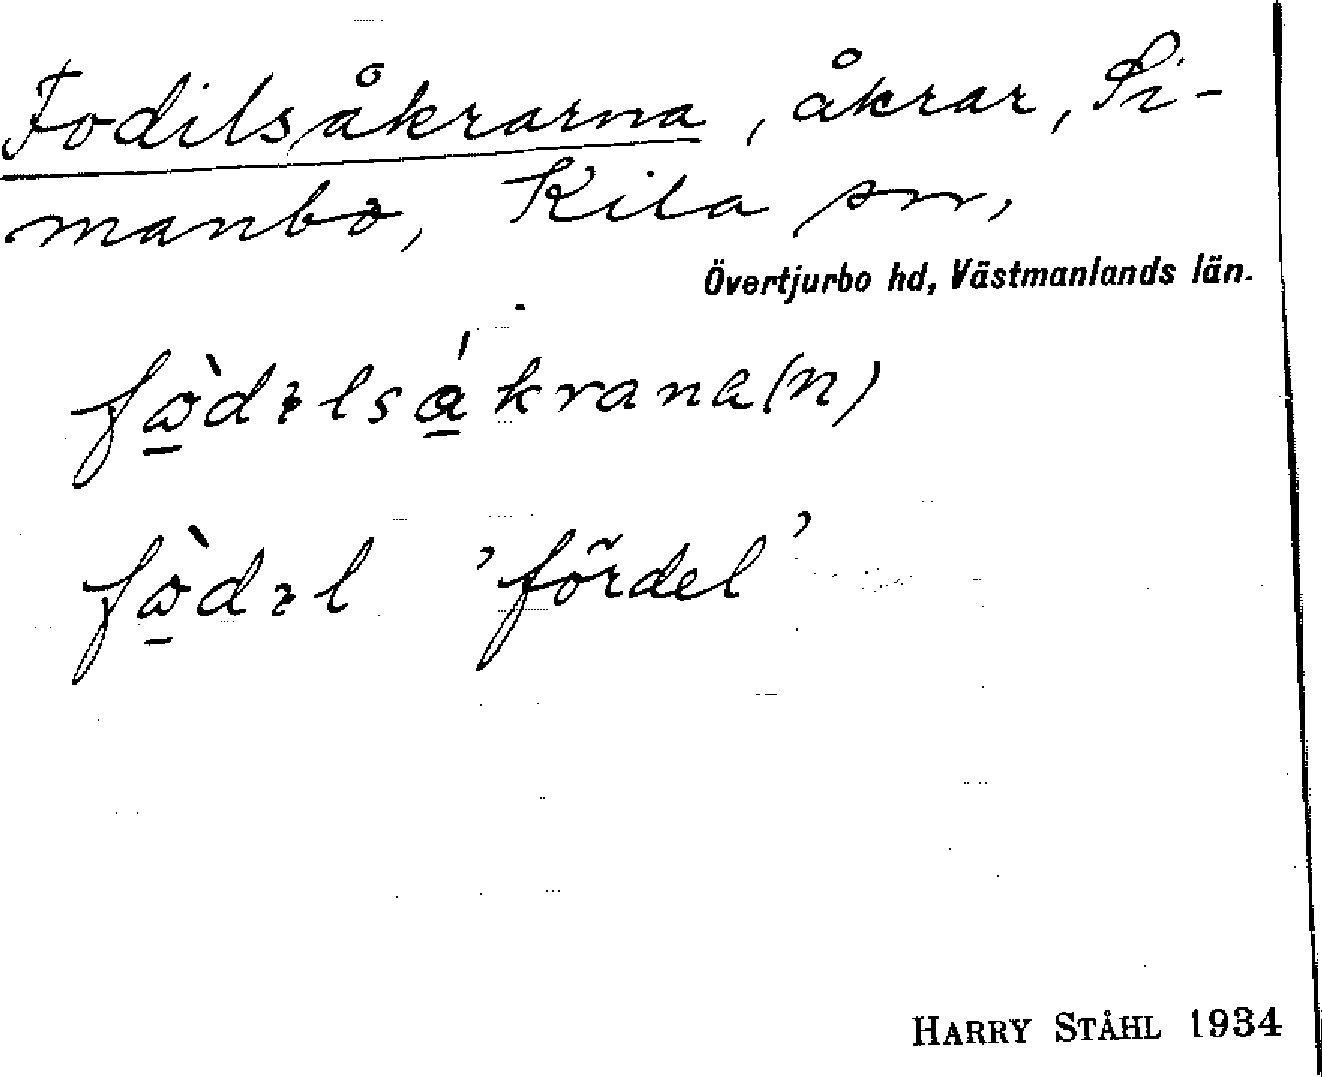 Fodilsåkrarna, åkrar, Si-
manbo, Kila sn,
Övertjurbo hd, Västmanlands län.
fὼ̲dɂlsά̲krana(n)
fὼ̲dɂl 'fördel'
HARRY STÅHL 1934